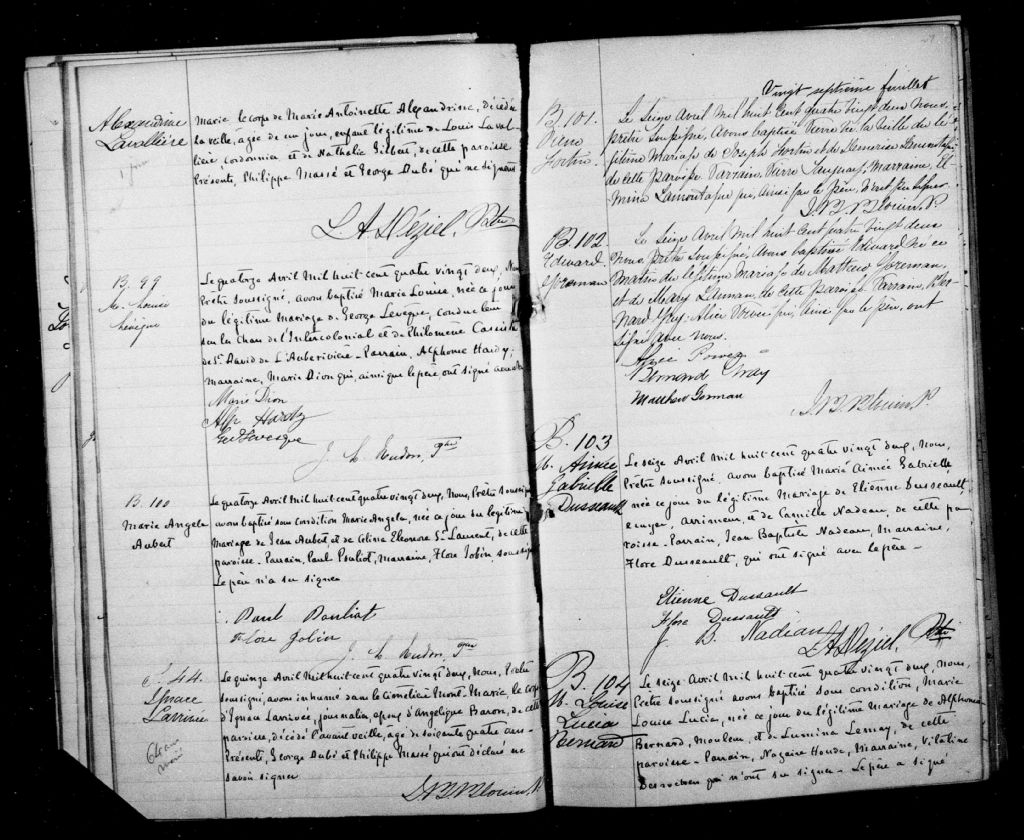 Alexandrine
Lavallière
1 jour
Marie le corps de Marie Antoinette Alexandrine, décédée
la veille, agée de un jour, enfant légitime de Louis Laval-
lière, cordonnier et de Nathalie Gilbert, de cette paroisse
Présents, Philippe Massé et George Dubé qui ne signent
L A Déziel, Ptre
B. 99
M. Louise
Lévèque
Le quatorze Avril Mil huit cent quatre vingt deux, Nous
Prêtre soussigné, avons baptisé Marie Louise, née ce jour
du légitime Mariage de George Leveque, conducteur
sur les Chars de l'Intercolonial et de Philomène
de St David de L'Auberivière - Parrain, Alphonse Hardy;
Marraine, Marie Dion qui, ainsi que le père ont signé avec nous
Marie Dion
Alp Hardy
Geo Levesque
B. 100
Marie Angela
Aubert
Le quatorze Avril Mil huit cent quatre vingt deux, Nous, Prêtre soussigné
avons baptisé sous condition Marie Angela, née ce jour du légitime
Mariage de Jean Aubert et de Célina Eleonore St Laurent, de cette
paroisse - Parrain, Paul Pouliot, Marraine, Flore Jobin, soussignés
Le père n'a su signer
Paul Pouliot
Flore Jobin
S. 44.
Ignace
Larrivée
Le quinze Avril Mil huit cent quatre vingt deux, Nous, Prêtre
soussigné, avons inhumé dans le Cimetière Mont-Marie, le corps
d'Ignace Larrivée, journalier, époux d'Angélique Baron, de cette
paroisse, décédé l'avant veille, agé de soixante quatre ans
Présents, George Dubé et Philippe Massé qui ont déclaré ne
savoir signer
Vingt septième feuillet
B. 101.
Pierre
Fortin.
Le Seize Avril Mil huit Cent quatre vingt deux Nous
prêtre soussigné, Avons baptisé Pierre né la veille du lé
gitime Mariage de Joseph Fortin et de Lamontagne
de cette paroisse Parrain, Pierre Marraine,
Lamontagne qui, ainsi que le père, n'ont pu signer
J. B. Blouin. P.
B. 102
Edward
Goreman
Le Seize Avril Mil huit Cent quatre vingt deux
Nous prêtre soussigné, Avons baptisé Edward né ce
Matin du légitime Mariage de Matthew Goreman,
et de Mary de cette paroisse Parrain, Ber
nard Alice Power qui, ainsi que le père, ont
signé avec nous.
Alice Power
Bernard
Matthew Gorman
J. B. Blouin. P.
B. 103
M. Aimée
Gabrielle
Dusseault
Le seize Avril Mil huit cent quatre vingt deux, Nous,
Prêtre soussigné, avons baptisé Marie Aimée Gabrielle
née ce jour du légitime Mariage de Etienne Dusseault,
ecuyer, arrimeur, et de Camille Nadeau, de cette pa
roisse - Parrain, Jean Baptiste Nadeau, Marraine,
Flore Dusseault, qui ont signé avec le père -
Etienne Dussault
Flore Dussault
J. B. Nadeau
L A Déziel, Ptre
B. 104
M. Louise
Lucia
Bernard
Le seize Avril Mil huit cent quatre vingt deux, Nous,
Prêtre soussigné avons baptisé sous condition, Marie
Louise Lucia, née ce jour du légitime Mariage de Alphonse
Bernard, Mouleur, et de Lumina Lemay, de cette
paroisse - Parrain, Nazaire Houde, Marraine, Vitaline
Desrochers qui n'ont su signer - Le père a signé